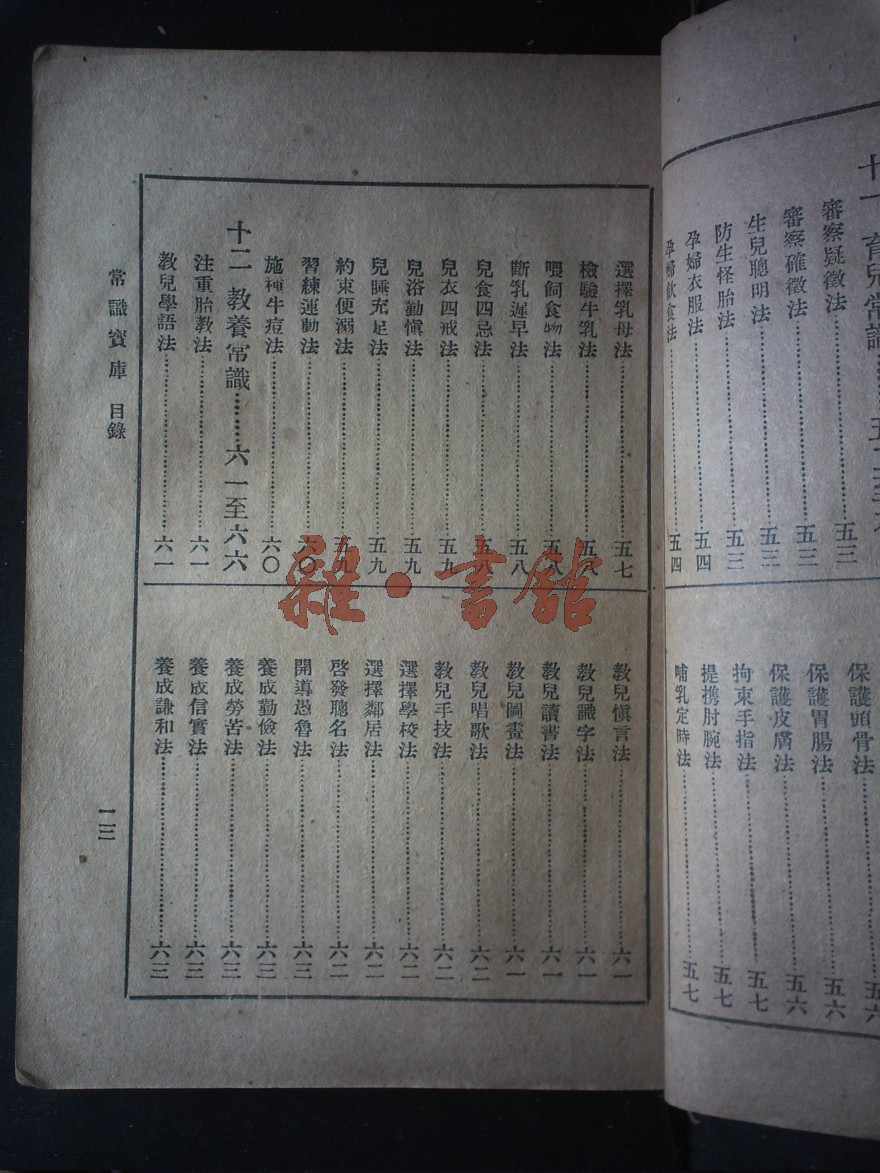 審察疑徵法…………五三
審察確徵法…………五三
生兒聰明法…………五三
防生怪胎法…………五三
孕婦衣服法…………五四
孕婦飲食法…………五四
保護頭骨法…………五六
保護胃腸法…………五六
保護皮膚法…………五六
拘束手指法…………五七
提携肘腕法…………五七
哺乳定時法…………五七
選擇乳母法…………五七
檢驗牛乳法…………五八
喂飼食物法…………五八
斷乳遲早法…………五八
兒食四忌法…………五八
兒衣四戒法…………五九
兒浴勤愼法…………五九
兒睡充足法…………五九
約束便溺法…………五九
習練運動法…………六〇
施種牛痘法…………六〇
十二 教養常識……六一至六六
注重胎教法…………六一
教兒學語法…………六一
教兒愼言法…………六一
教兒識字法…………六一
教兒讀書法…………六一
教兒圖畫法…………六一
教兒唱歌法…………六二
教兒手技法…………六二
選擇學校法…………六二
選擇鄰居法…………六二
啓發聰名法…………六二
開導愚魯法…………六三
養成勤儉法…………六三
養成勞苦法…………六三
養成信實法…………六三
養成謙和法…………六三
常識寶庫 目錄
一三
雜·書館